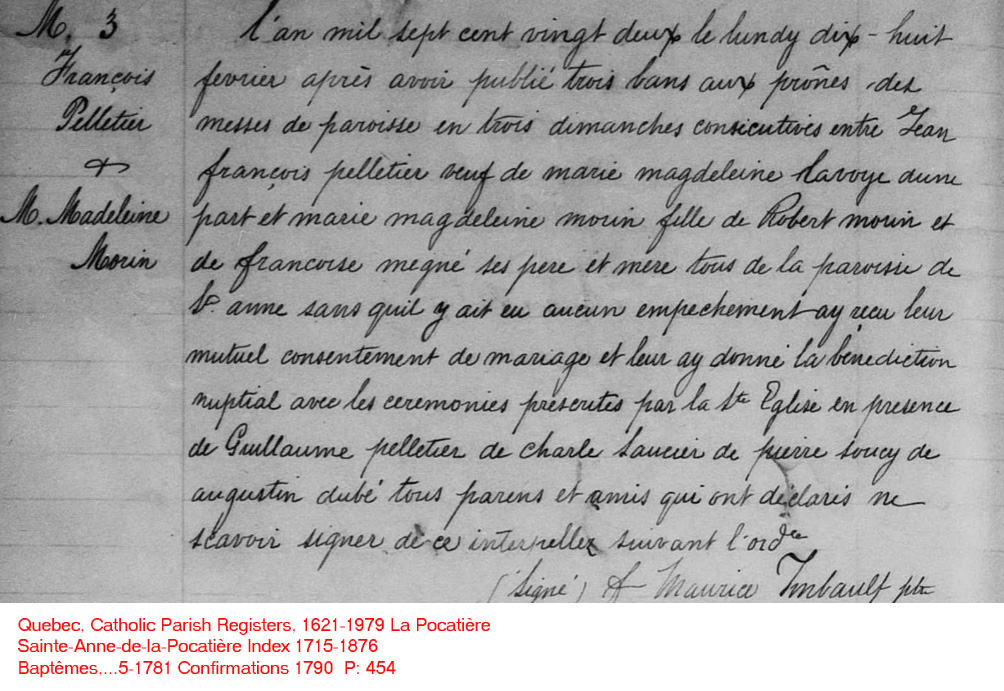 M. 3
François
Pelletier
&
M. Madeleine
Morin
l'an mil sept cent vingt deux le lundy dix-huit
fevrier après avoir publié trois bans aux prônes des
messes de paroisse en trois dimanches consicutives entre Jean
françois pelletier veuf de marie magdeleine lavoye dune
part et marie magdeleine morin fille de Robert morin et
de francoise megné ses pere et mere tous de la paroisse de
Ste anne sans quil y ait eu aucun empechement ay reçu leur
mutuel consentement de mariage et leur ay donné la benediction
nuptial avec les ceremonies prescrites par la Ste Eglise en presence
de Guillaume pelletier de charle saucier de pierre soucy de
augustin dubé tous parens et amis qui ont déclaris ne
scavoir signer de ce interpellez suivant l'ordce
(signé) f Maurice Imbault ptre
Quebec, Catholic Parish Registers, 1621-1979 La Pocatière
Sainte-Anne-de-la-Pocatière Index 1715-1876
Baptêmes,...5-1781 Confirmations 1790 P: 454